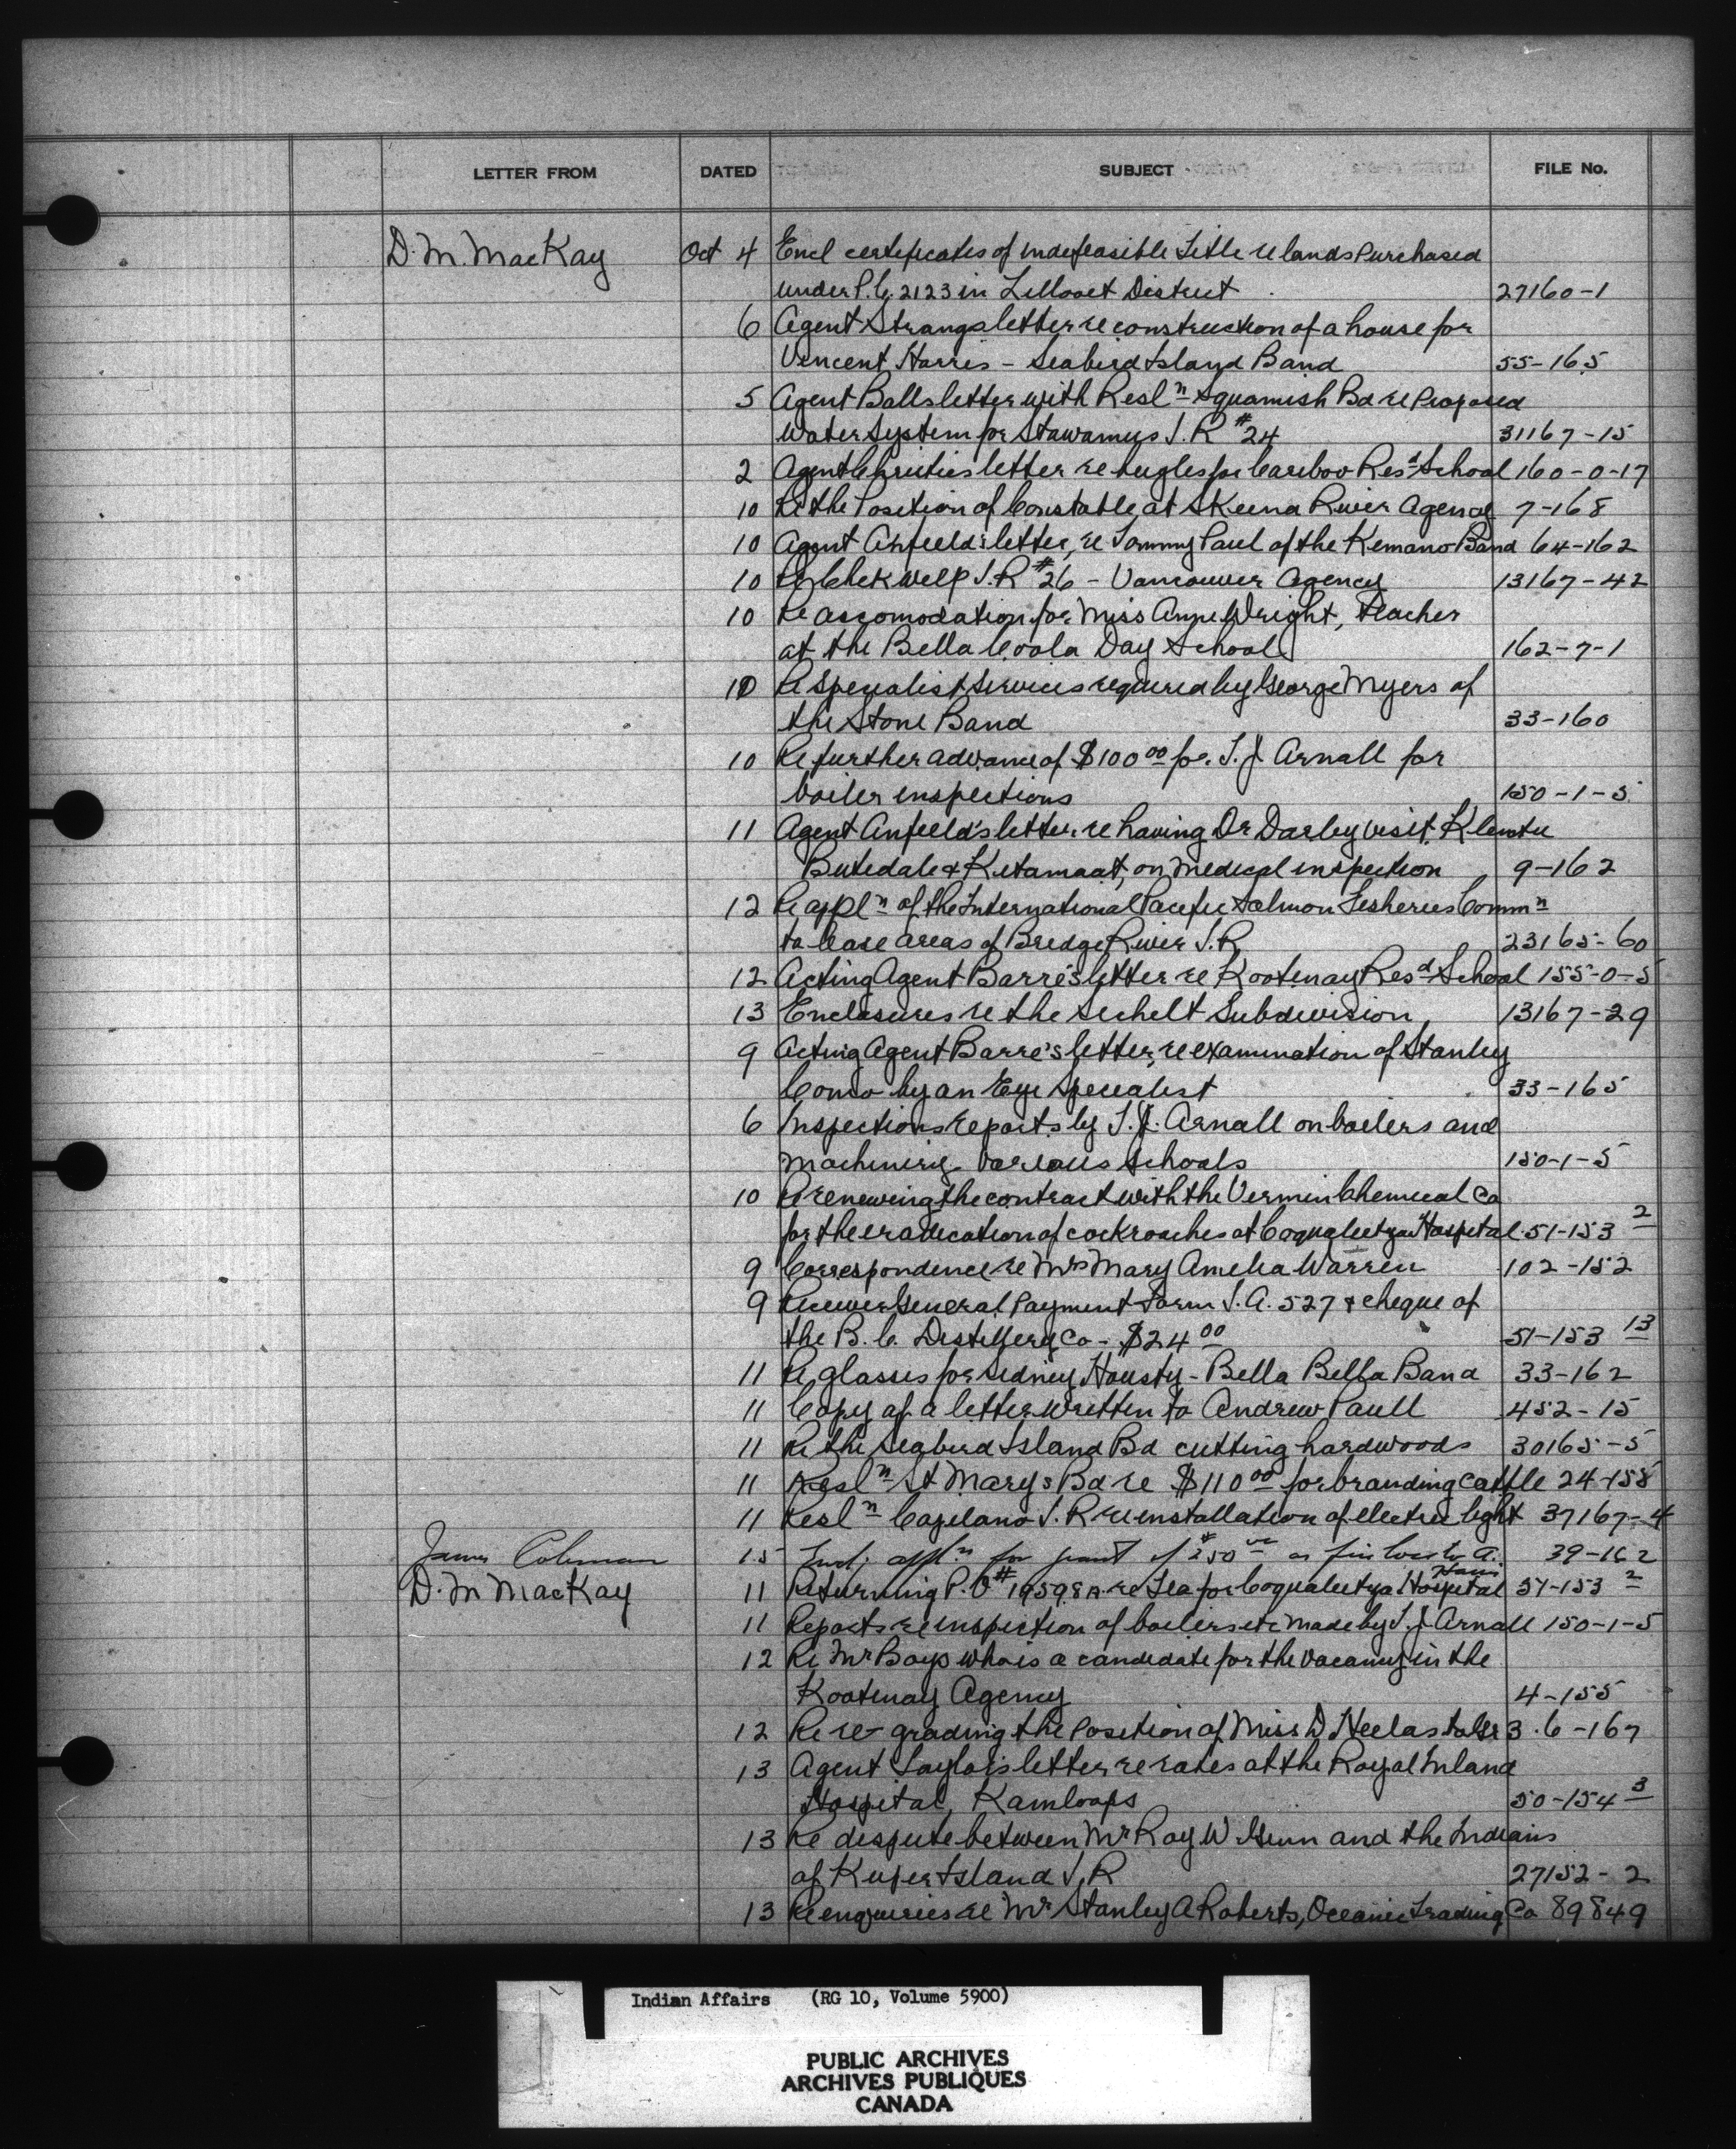 LETTER FROM DATED SUBJECT FILE No.
D. M. MacKay Oct 4 Encl certificates of Indefeasible Title re lands Purchased
under P.C. 2123 in Lillooet District 27160-1
6 Agent Strangs letter re construction of a house for
Vincent Harris - Seabird Island Band 55-165
5 Agent Balls letter with Resl<u>n</u> Squamish Bd re Proposed
Water System for Stawamus I.R #24 31167-15
2 Agent Christies letter re bugles for Cariboo Resd School 160-0-17
10 Re the Position of Constable at Skeena River Agency 7-168
10 Agent Anfield's letter, re Tommy Paul of the Kemano Band 64-162
10 Re Chekwelp I.R #26 - Vancouver Agency 13167-42
10 Re accomodation for Miss Anne Wright, teacher
at the Bella Coola Day School 162-7-1
10 Re Specialist Services required by George Myers of
the Stone Band 33-160
10 Re further advance of $100 00 for T. J. Arnall for
boiler inspections 150-1-5
11 Agent Anfield's letter re having Dr Darby visit Klemtu
Butedale & Kitamaat, on medical inspection 9-162
12 Re appln of the International Pacific Salmon Fisheries Commn
to lease areas of Bridge River I.R. 23165-60
12 Acting Agent Barre's letter re Kootenay Resd School 155-0-5
13 Enclosures re the Sechelt Subdivision 13167-29
9 Acting Agent Barre's letter, re examination of Stanley
Como by an Eye Specialist 33-165
6 Inspections reports by T. J. Arnall on boilers and
Machinery various schools 150-1-5
10 Re renewing the contract with the Vermin Chemical Co
for the eradication of cockroaches at Coqualeetza Hospital 51-153 2
9 Correspondence re Mrs Mary Amelia Warren 102-152
9 Receiver General Payment Form I.A. 527 & cheque of
the B.C. Distillery Co - $24 00 51-153 13
11 Re glasses for Sidney Housty - Bella Bella Band 33-162
11 Copy of a letter written to Andrew Paull 452-15
11 Re the Seabird Island Bd cutting hardwoods 30165-5
11 Resln St Marys Bd re $110 00 for branding cattle 24-155
11 Resln Capilano I.R re installation of electric light 37167-4
James Coleman 15 Encl. appln for grant of $250 00 as fire loss to A. 39-162
D. M MacKay 11 Returning P.O # 19598A re Tea for Coqualeetza Hospital 51-153 2
11 Reports re inspection of boilers etc made by T. J. Arnall 150-1-5
12 Re Mr Boys who is a candidate for the vacancy in the
Kootenay Agency 4-155
12 Re re-grading the Position of Miss D Heelas to Gr 3 6-167
13 Agent Taylor's letter re rates at the Royal Inland
Hospital, Kamloops 50-154 3
13 Re dispute between Mr Roy W Ginn and the Indians
of Kuper Island I.R 27152-2
13 Re enquiries re Mr Stanley A Roberts, Oceanic Trading Co 89849
Indian Affairs (RG 10, Volume 5900)
PUBLIC ARCHIVES
ARCHIVES PUBLIQUES
CANADA